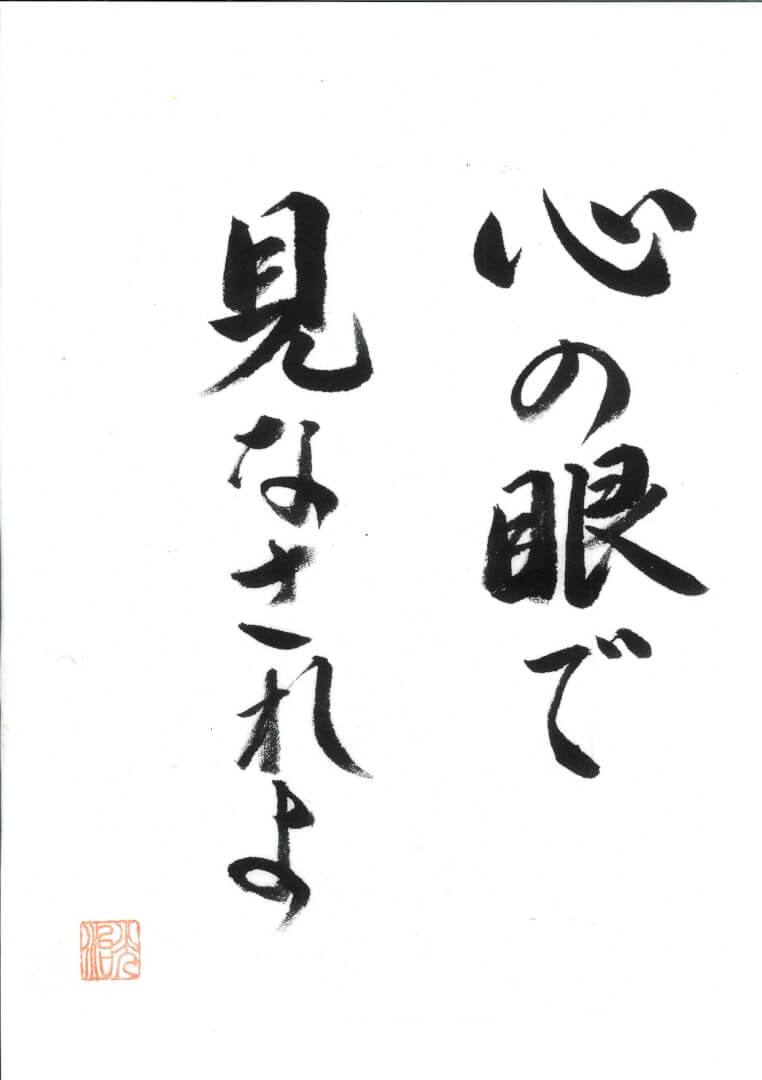 心の眼で
見なされよ